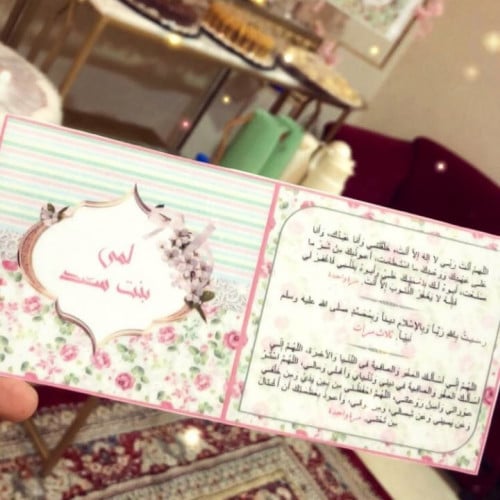 لمى
بنت سعد
اللهم أنت ربي لا إله إلا أنت، خلقتني وأنا عبدك، وأنا
على عهدك ووعدك ما استطعت، أعوذبك من شر ما
صنعت، أبوء لك بنعمتك علي، وأبوء بذنبي فاغفر لي
فإنه لا يغفر الذنوب إلا أنت. مرة واحدة
رضيت بالله رباً وبالإسلام ديناً وبمحمد صلى الله عليه وسلم
نبياً. ثلاث مرات
اللهم إني أسألك العفو والعافية في الدنيا والآخرة، اللهم إني
أسألك العفو والعافية في ديني ودنياي وأهلي ومالي، اللهم استر
عوراتي وآمن روعاتي، اللهم احفظني من بين يدي ومن خلفي
وعن يميني وعن شمالي، ومن فوقي، وأعوذ بعظمتك أن أغتال
من تحتي. مرة واحدة